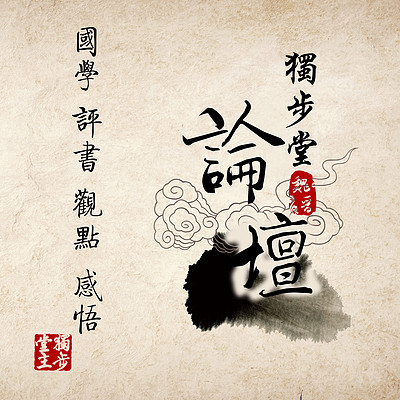 獨步堂
魏晉
論壇
國學 評書 觀點 感悟
獨步
堂主